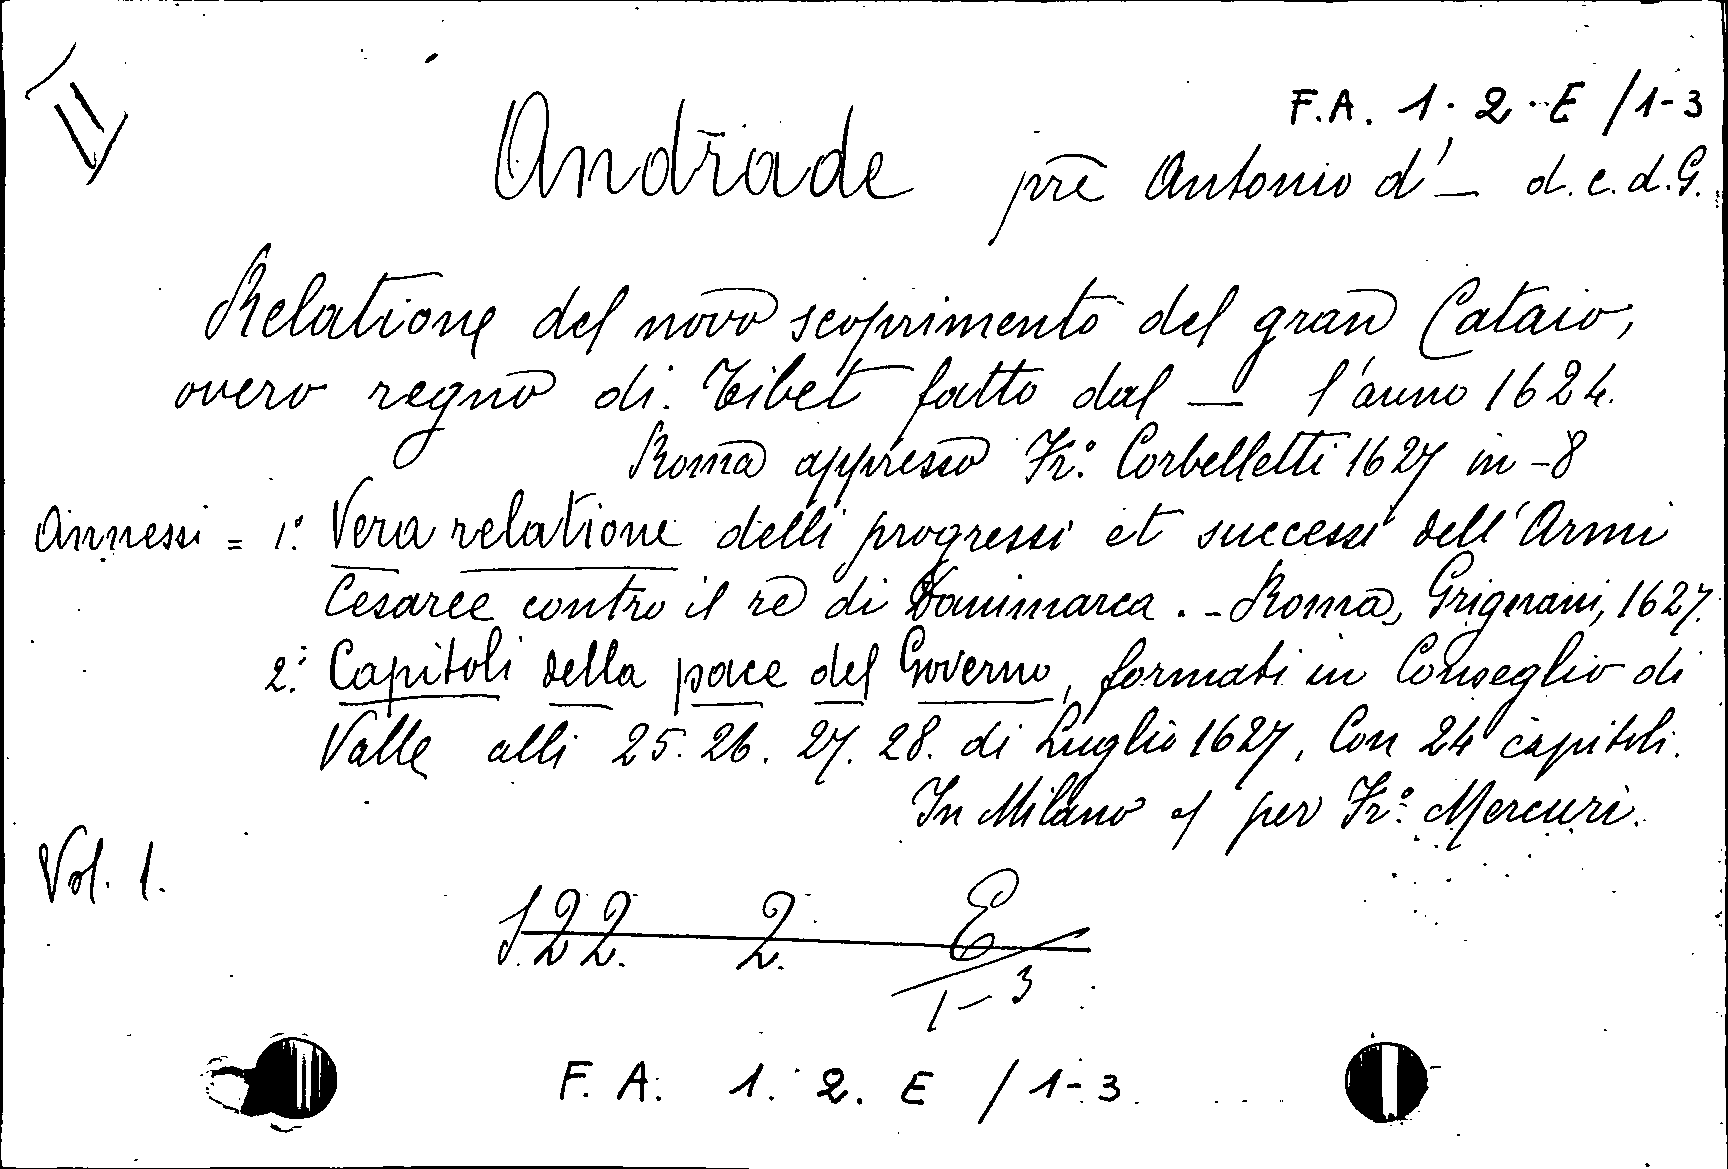 F.A. 1. 2. E /1-3
Andrade prē Antonio d'_ d. c. d. G.
Relatione del novo scoprimento del gran Cataio,
overo regno di Tibet fatto dal _ l'anno 1624.
Roma appresso Fr.º Corbelletti 1627 in -8
Annessi = 1.º Vera relatione delli progressi et successi dell'Armi
Cesaree contro il re di Danimarca. - Roma, Grignani, 1627.
2.º Capitoli della pace del Governo, formati in Conseglio di
Valle alli 25. 26. 27. 28. di Luglio 1627. Con 24 capitoli.
In Milano e per Fr.º Mercuri.
Vol. 1.
122. 2. E
1-3
F. A. 1. 2. E / 1-3